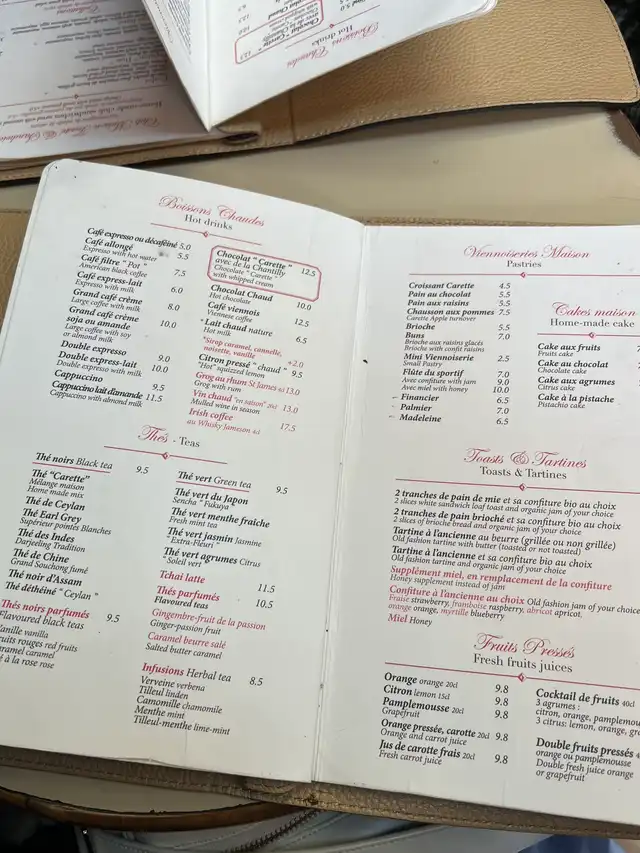 Boissons Chaudes
Hot drinks
Café expresso ou décaféiné 5.0
Café allongé
Expresso with hot water 5.5
Café filtre " Pot "
American black coffee 7.5
Café express-lait
Expresso with milk 6.0
Grand café crème
Large coffee with milk 8.0
Grand café crème
soja ou amande 10.0
Large coffee with soy
or almond milk
Double expresso 9.0
Double express-lait 10.0
Double expresso with milk
Cappuccino 9.5
Cappuccino lait d'amande 11.5
Cappuccino with almond milk
Chocolat " Carette " 12.5
avec de la Chantilly
Chocolate " Carette "
with whipped cream
Chocolat Chaud 10.0
Hot chocolate
Café viennois 12.5
Viennese coffee
* Lait chaud nature 6.5
Hot milk
*Sirop caramel, cannelle, +2.0
noisette, vanille
Citron pressé " chaud " 9.5
"Hot" squized lemon
Grog au rhum St James 13.0
Grog with rum
Vin chaud "en saison" 13.0
Mulled wine in season
Irish coffee 17.5
au Whisky Jameson 4cl
Thés - Teas
Thé noirs Black tea 9.5
Thé "Carette"
Mélange maison
Home made mix
Thé de Ceylan
Thé Earl Grey
Supérieur pointes Blanches
Thé des Indes
Darjeeling Tradition
Thé de Chine
Grand Souchong fumé
Thé noir d'Assam
Thé déthéiné " Ceylan "
Thés noirs parfumés 9.5
Flavoured black teas
Vanille vanilla
Fruits rouges red fruits
Caramel caramel
à la rose rose
Thé vert Green tea 9.5
Thé vert du Japon
Sencha " Fukuya "
Thé vert menthe fraîche
Fresh mint tea
Thé vert jasmin Jasmine
Extra-Fleuri
Thé vert agrumes Citrus
" Soleil vert "
Tchai latte 11.5
Thés parfumés 10.5
Flavoured teas
Gingembre-fruit de la passion
Ginger-passion fruit
Caramel beurre salé
Salted butter caramel
Infusions Herbal tea 8.5
Verveine verbena
Tilleul linden
Camomille chamomile
Menthe mint
Tilleul-menthe lime-mint
Viennoiseries Maison
Pastries
Croissant Carette 4.5
Pain au chocolat 5.5
Pain aux raisins 5.5
Chausson aux pommes 7.5
Carette Apple turnover
Brioche 5.5
Buns 7.0
Brioche aux raisins glacés
Brioche with confit raisins
Mini Viennoiserie 2.5
Small Pastry
Flûte du sportif 7.0
Avec confiture with jam 9.0
Avec miel with honey 10.0
Financier 6.5
Palmier 7.0
Madeleine 6.5
Cakes maison
Home-made cake
Cake aux fruits
Fruits cake
Cake au chocolat
Chocolate cake
Cake aux agrumes
Citrus cake
Cake à la pistache
Pistachio cake
Toasts & Tartines
Toasts & Tartines
2 tranches de pain de mie et sa confiture bio au choix
2 slices white sandwich loaf toast and organic jam of your choice
2 tranches de pain brioché et sa confiture bio au choix
2 slices of brioche bread and organic jam of your choice
Tartine à l'ancienne au beurre (grillée ou non grillée)
Old fashion tartine with butter (toasted or not toasted)
Tartine à l'ancienne et sa confiture bio au choix
Old fashion tartine and organic jam of your choice
Supplément miel, en remplacement de la confiture
Honey supplement instead of jam
Confiture à l'ancienne au choix Old fashion jam of your choice
Fraise strawberry, framboise raspberry, abricot apricot,
orange orange, myrtille blueberry
Miel Honey
Fruits Pressés
Fresh fruits juices
Orange orange 20cl 9.8
Citron lemon 15cl 9.8
Pamplemousse 20cl 9.8
Grapefruit
Orange pressée, carotte 20cl 9.8
Orange and carrot juice
Jus de carotte frais 20cl 9.8
Fresh carrot juice
Cocktail de fruits 40cl
3 agrumes :
citron, orange, pamplemou
3 citrus: lemon, orange, gr
Double fruits pressés
orange ou pamplemousse
Double fresh juice orange
or grapefruit